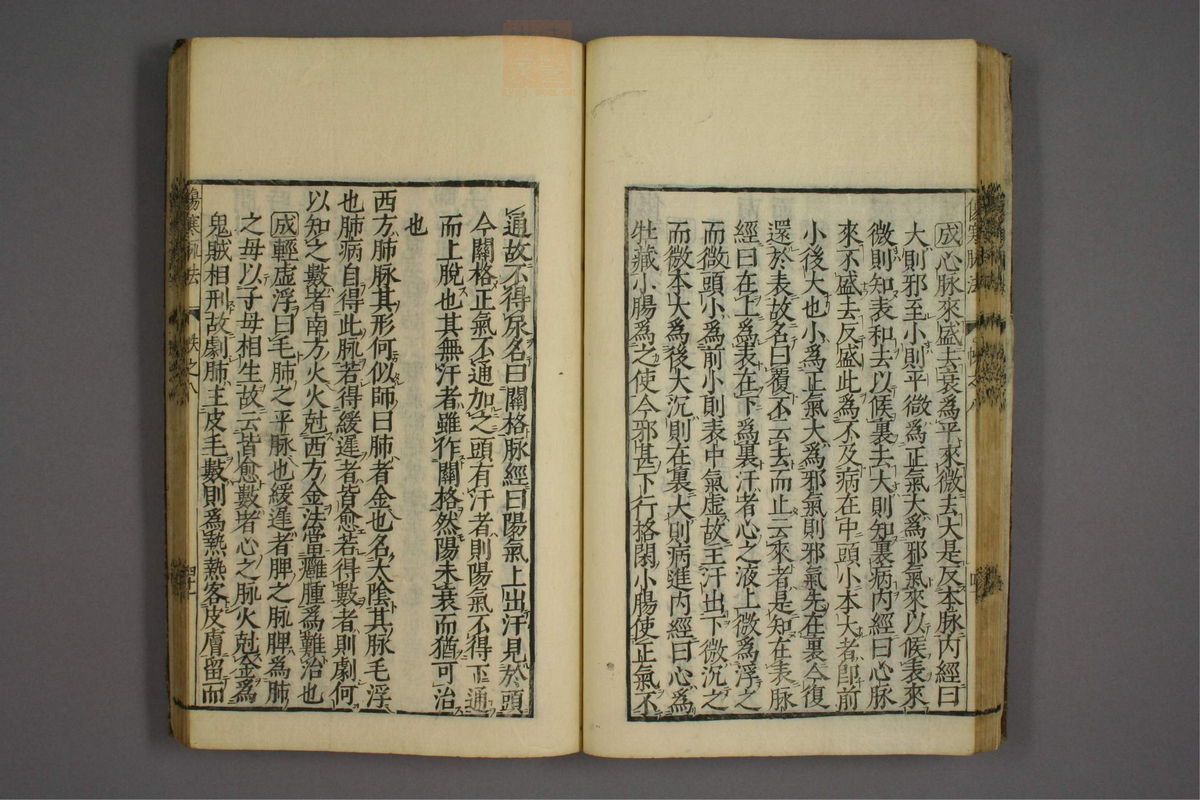 成心脉來盛去衰爲平來微去大是反本脉内經曰
大則邪至小則平微爲正氣大爲邪氣來以候表來
微則知表和去以候裏去大則知裏病内經曰心脉
來不盛去反盛此爲不及病在中頭小本大者卽前
小後大也小爲正氣大爲邪氣則邪氣先在裏今復
還於表故名曰覆不云去而止云來者是知在表脉
經曰在上爲表在下爲裏汗者心之液上微爲浮之
而微頭小爲前小則表中氣虛故主汗出下微沉之
而微本大爲後大沉則在裏大則病進内經曰心爲
牡藏小腸爲之使今邪甚下行格閉小腸使正氣不
通故不得尿名曰關格脉經曰陽氣上出汗見於頭
今關格正氣不通加之頭有汗者則陽氣不得下通
而上脫也其無汗者雖作關格然陽未衰而猶可治
也
西方肺脉其形何似師曰肺者金也名太陰其脉毛浮
也肺病自得此脉若得緩遲者皆愈若得數者則劇何
以知之數者南方火火尅西方金法當癰腫爲難治也
成輕虛浮曰毛肺之平脉也緩遲者脾之脉脾爲肺
之母以子母相生故云皆愈數者心之脉火尅金爲
鬼賊相刑故劇肺主皮毛數則爲熱熱客皮膚留而
傷寒脉法